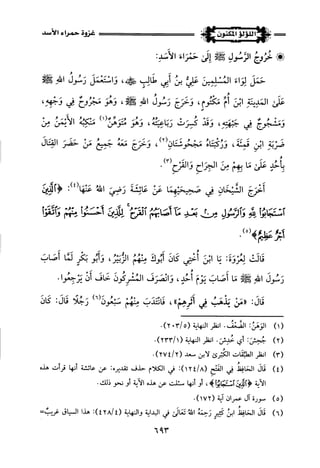 اللؤلؤ المكنون
غزوة حمراء الأسد
* خُرُوجُ الرَّسُولِ ﷺ إِلَى حَمْرَاءِ الأَسَدِ:
حَمَلَ لِوَاءَ المُسْلِمِينَ عَلِيُّ بنُ أَبِي طَالِبٍ ﷺ، وَاسْتَعْمَلَ رَسُولُ اللهِ ﷺ
عَلَى المَدِينَةِ ابْنَ أُمِّ مَكْتُومٍ، وَخَرَجَ رَسُولُ اللهِ ﷺ، وَهُوَ مَجْرُوحٌ فِي وَجْهِهِ،
وَمَشْجُوجٌ فِي جَبْهَتِهِ، وَقَدْ كُسِرَتْ رَبَاعِيَتُهُ، وَهُوَ مُتَوَهِّنٌ(١) مَنْكِبُهُ الأَيْمَنُ مِنْ
ضَرْبَةِ ابْنِ قَمِئَةَ، وَرُكْبَتَاهُ مَجْحُوشَتَانِ(٢)، وَخَرَجَ مَعَهُ جَمِيعُ مَنْ حَضَرَ القِتَالَ
بِأُحُدٍ عَلَى مَا بِهِمْ مِنَ الجِرَاحِ وَالقَرْحِ(٣).
أَخْرَجَ الشَّيْخَانِ فِي صَحِيحَيْهِمَا عَنْ عَائِشَةَ رَضِيَ اللهُ عَنْهَا(٤): ﴿الَّذِينَ
اسْتَجَابُوا لِلَّهِ وَالرَّسُولِ مِنْ بَعْدِ مَا أَصَابَهُمُ الْقَرْحُ لِلَّذِينَ أَحْسَنُوا مِنْهُمْ وَاتَّقَوْا
أَجْرٌ عَظِيمٌ﴾(٥).
قَالَتْ لِعُرْوَةَ: يَا ابْنَ أُخْتِي كَانَ أَبُوكَ مِنْهُمُ الزُّبَيْرُ، وَأَبُو بَكْرٍ لَمَّا أَصَابَ
رَسُولَ اللهِ ﷺ مَا أَصَابَ يَوْمَ أُحُدٍ، وَانْصَرَفَ المُشْرِكُونَ خَافَ أَنْ يَرْجِعُوا.
قَالَ: «مَنْ يَذْهَبُ فِي أَثَرِهِمْ»، فَانْتَدَبَ مِنْهُمْ سَبْعُونَ(٦) رَجُلًا قَالَ: كَانَ
(١) الوَهْنُ: الضَّعْفُ. انظر النهاية (٢٠٣/٥).
(٢) جُحِشَ: أي خُدِشَ. انظر النهاية (٢٣٣/١).
(٣) انظر الطَّبَقَات الكُبْرى لابن سعد (٢٧٤/٢).
(٤) قَالَ الحَافِظُ فِي الفَتْحِ (١٢٤/٨): في الكلامِ حذف تقديره: عن عائشة أنها قرأت هذه
الآية ﴿الَّذِينَ اسْتَجَابُوا﴾، أو أنها سئلت عن هذه الآية أو نحو ذلك.
(٥) سورة آل عمران آية (١٧٢).
(٦) قَالَ الحَافِظُ ابنُ كَثِيرٍ رَحِمَهُ اللهُ تَعَالَى فِي البداية والنهاية (٤٢٨/٤): هذا السياق غريبٌ=
٦٩٣